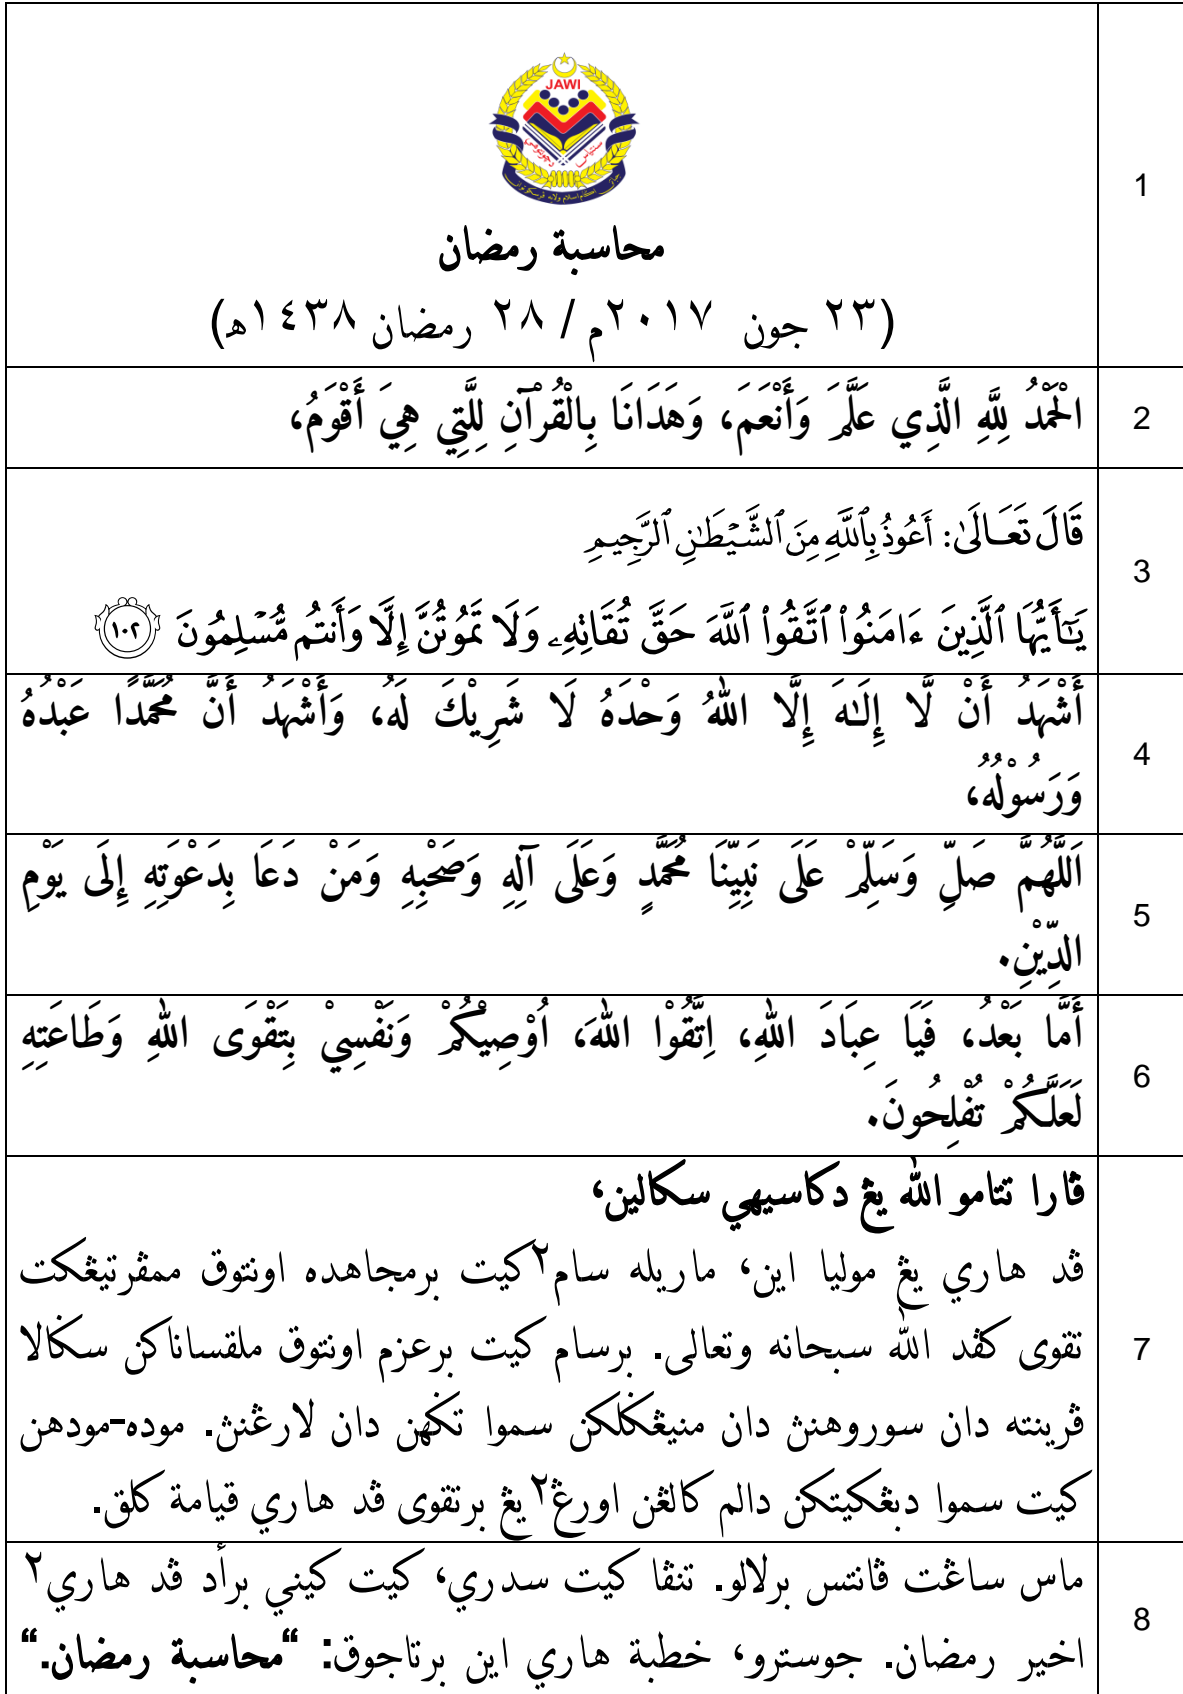 JAWI
محاسبة رمضان
(٢٣ جون ٢٠١٧م / ٢٨ رمضان ١٤٣٨ه)
1
الْحَمْدُ لِلَّهِ الَّذِي عَلَّمَ وَأَنْعَمَ، وَهَدَانَا بِالْقُرْآنِ لِلَّتِي هِيَ أَقْوَمُ،
2
قَالَ تَعَالَىٰ: أَعُوذُ بِٱللَّهِ مِنَ ٱلشَّيْطَٰنِ ٱلرَّجِيمِ
يَٰٓأَيُّهَا ٱلَّذِينَ ءَامَنُوا۟ ٱتَّقُوا۟ ٱللَّهَ حَقَّ تُقَاتِهِۦ وَلَا تَمُوتُنَّ إِلَّا وَأَنتُم مُّسْلِمُونَ ١٠٢
3
أَشْهَدُ أَنْ لَّا إِلَـٰهَ إِلَّا اللهُ وَحْدَهُ لَا شَرِيْكَ لَهُ، وَأَشْهَدُ أَنَّ مُحَمَّدًا عَبْدُهُ
وَرَسُوْلُهُ،
4
اَللَّهُمَّ صَلِّ وَسَلِّمْ عَلَى نَبِيِّنَا مُحَمَّدٍ وَعَلَى آلِهِ وَصَحْبِهِ وَمَنْ دَعَا بِدَعْوَتِهِ إِلَى يَوْمِ
الدِّيْنِ.
5
أَمَّا بَعْدُ، فَيَا عِبَادَ اللهِ، اِتَّقُوْا اللهَ، اُوْصِيْكُمْ وَنَفْسِيْ بِتَقْوَى اللهِ وَطَاعَتِهِ
لَعَلَّكُمْ تُفْلِحُونَ.
6
ڤارا تتامو الله يڠ دكاسيهي سكالين،
ڤد هاري يڠ موليا اين، ماريله سام٢ كيت برمجاهده اونتوق ممڤرتيڠكت
تقوى كڤد الله سبحانه وتعالى. برسام كيت برعزم اونتوق ملقساناكن سݢالا
ڤرينته دان سوروهنڽ دان منيڠݢلكن سموا تݢهن دان لارڠنڽ. موده-مودهن
كيت سموا دبڠكيتكن دالم كالڠن اورڠ٢ يڠ برتقوى ڤد هاري قيامة كلق.
7
ماس ساڠت ڤانتس برلالو. تنڤا كيت سدري، كيت كيني برأد ڤد هاري٢
اخير رمضان. جوسترو، خطبة هاري اين برتاجوق: “محاسبة رمضان.“
8